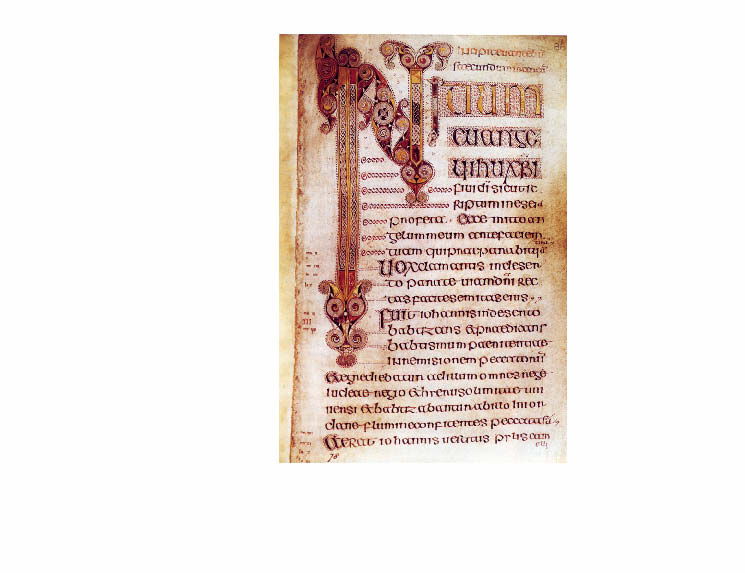 INITIUM
euange
lii ihu xpi
filii di sicut
riptum in esei
profeta. Ecce mitto an
gelum meum ante faciem
tuam qui
Uox clamantis in deser
to parate uiam dni rec
tas facite semitas eius
Fuit iohannis in deserto
babtizans et praedicans
babtismum paenitentiae
in remisionem peccatorū
Et egrediebatur ad illum omnes
iudeae regio et hierusolimitae uni
uersi et babtizabantur ab illo in ior
dane flumine confitentes peccata sua
Et erat iohannis uestitus pilis cam
eli
78